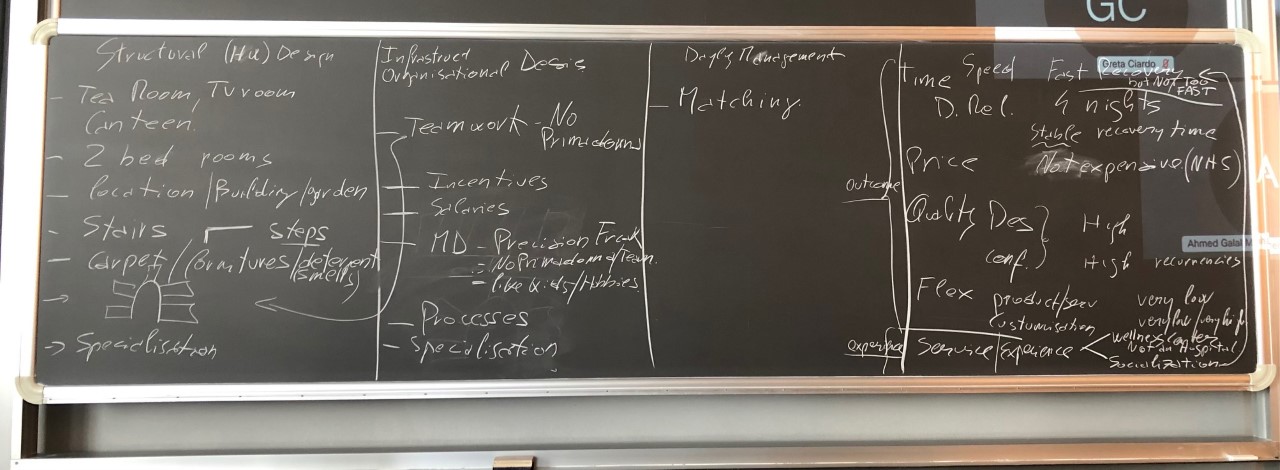 GC
Structural (HW) Design
- Tea Room, TV room
Canteen
- 2 bed rooms
- location/Building/garden
- Stairs steps
- Carpet/fornitures/detergent
(smells)
→
→ Specialisation
Infrastruct
Organisational Desis
- Teamwork - No
Primadonna
- Incentives
- Salaries
- MD - Precision Freak
= No Primadonna/team.
= like kids/Hobbies
- Processes
- Specialisation
Daily Management
- Matching.
Outcome
Time Speed Fast Recovery
but NOT TOO
FAST
D. Rel. 4 nights
Stable recovery time
Price Not expensive (NHS)
Quality Des High
conf. High recurrencies
Flex product/serv very low
Custumisation very low/very high
experience
Service/Experience wellness center
Not an Hospital
Socialization
Greta Ciardo
Ahmed Galal
A